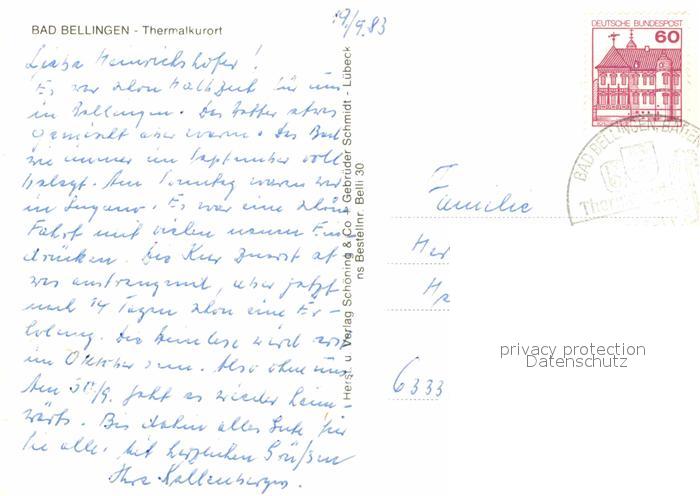 BAD BELLINGEN - Thermalkurort
19/9.83
DEUTSCHE BUNDESPOST
60
Liebe Heinrichshofer!
Es war schon Halbzeit für uns
in Bellingen. Das Wetter etwas
gemischt aber warm. Das Bad
wie immer im September voll
belegt. Am Sonntag waren wir
in Lugano. Es war eine schöne
Fahrt mit vielen neuen Ein
drücken. Die Kur zuerst et
was anstrengend, aber jetzt
nach 14 Tagen schon eine Er-
holung. Die Weinlese wird erst
im Oktober sein. Also ohne uns
Am 30/9. geht es wieder heim-
wärts. Bis dahin alles Gute für
Sie alle, mit herzlichen Grüßen
Ihre Kallenbergers.
Herst. u. Verlag Schöning & Co + Gebrüder Schmidt - Lübeck
ns Bestellnr. Belli 30
BAD BELLINGEN, BADEN
Familie
Her
6333
privacy protection
Datenschutz